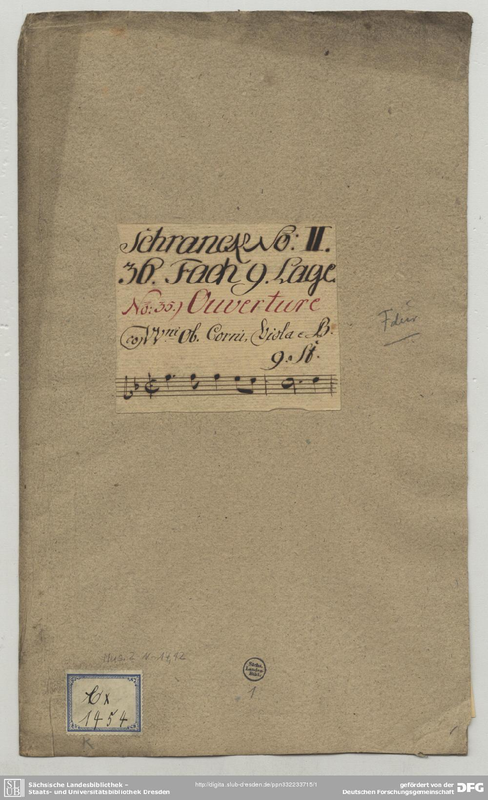 Schranck No: II.
36. Fach 9. Lage.
No: 35.) Ouverture
co VVni Ob. Corni, Viola e B.
9. St.
F dur
Cx
1454
K
1
Sächs.
Landes-
Bibl.
Sächsische Landesbibliothek –
Staats- und Universitätsbibliothek Dresden
http://digital.slub-dresden.de/ppn332233715/1
gefördert von der
Deutschen Forschungsgemeinschaft
DFG